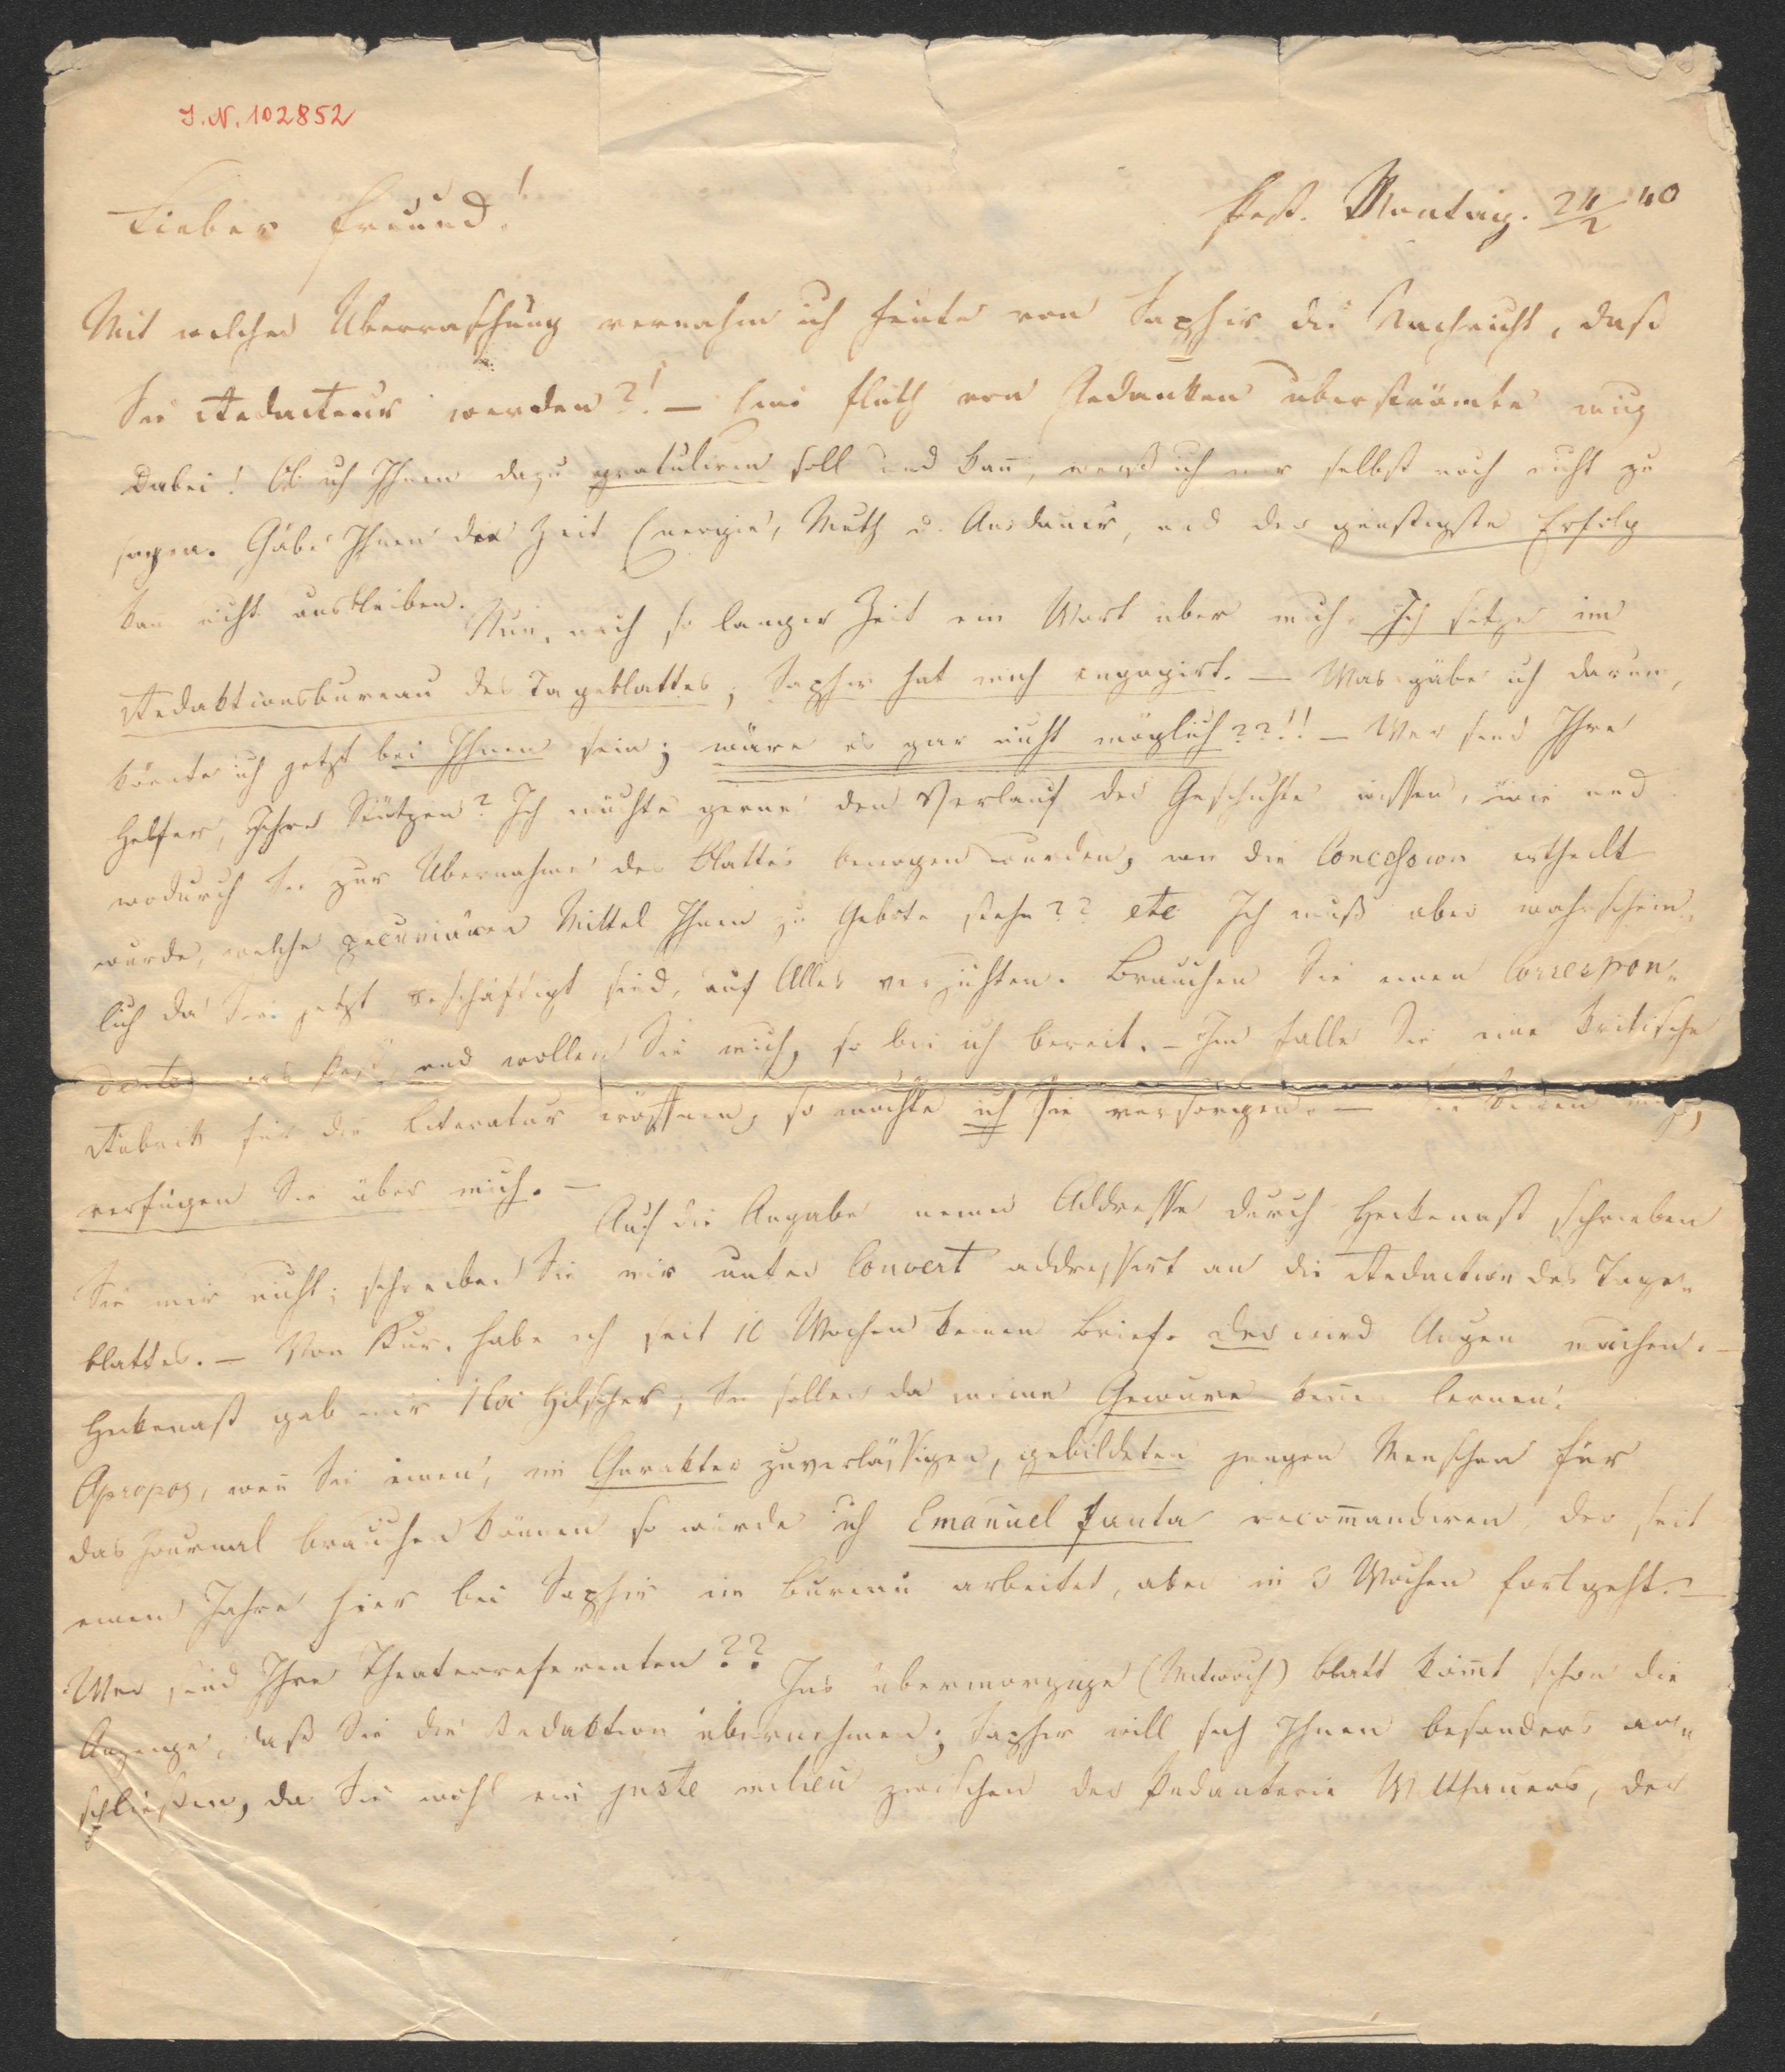 I. N. 102852
Lieber Freund!
Pest. Montag. 24/2 40
Mit welcher Überraschung vernahm ich heute von Saphir die Nachricht, daß
Sie Redacteur werden?! — Eine Fluth von Gedanken überströmte mich
dabei! Ob ich Ihnen dazu gratuliren soll und kann, weiß ich mir selbst noch nicht zu
sagen. Gäbe Ihnen die Zeit Energie, Muth u. Ausdauer, und der günstigste Erfolg
kan nicht ausbleiben.
Nun, nach so langer Zeit ein Wort über mich. Ich sitze im
Redaktionsbureau des Tageblattes, Saphir hat mich engagirt. — Was gäbe ich darum,
könnte ich jetzt bei Ihnen sein; wäre es gar nicht möglich??!! — Wer sind Ihre
Helfer, Ihre Stützen? Ich möchte gerne den Verlauf der Geschichte wissen, wie und
wodurch Sie zur Übernahme des Blattes bewogen wurden, wem die Concession ertheilt
wurde, welche pecuniären Mittel Ihnen zu Gebote stehn?? etc Ich muß aber wahrschein-
lich da Sie jetzt beschäftigt sind, auf Alles verzichten. Brauchen Sie einen Correspon-
denten aus Pest und wollen Sie mich, so bin ich bereit. — Im Falle Sie eine kritische
Rubrik für die Literatur eröffnen, so möchte ich sie versorgen. — Sie kennen mich,
verfügen Sie über mich. —
Auf die Angabe meiner Addresse durch Heckenast schrieben
Sie mir nicht; schreiben Sie mir unter Couvert addressirt an die Redaction des Tage-
blattes. — Von Kur. habe ich seit 10 Wochen keinen Brief. Der wird Augen machen. —
Heckenast gab mir Hilscher; Sie sollen da meine kenne lernen.
Apropos, wenn Sie einen, im Charakter zuverlässigen, gebildeten jungen Menschen für
das Journal brauchen können so würde ich Emanuel Janta recommandiren, der seit
einem Jahre hier bei Saphir im Bureau arbeitet, aber in 3 Wochen fortgeht. —
Wer sind Ihre Theaterreferenten??
Ins übermorgige (Mittwoch) Blatt kömmt schon die
Anzeige, daß Sie die Redaktion übernehmen; Saphir will sich Ihnen besonders an-
schließen, da Sie wohl ein juste milieu zwischen der Pedanterie Witthauers, der